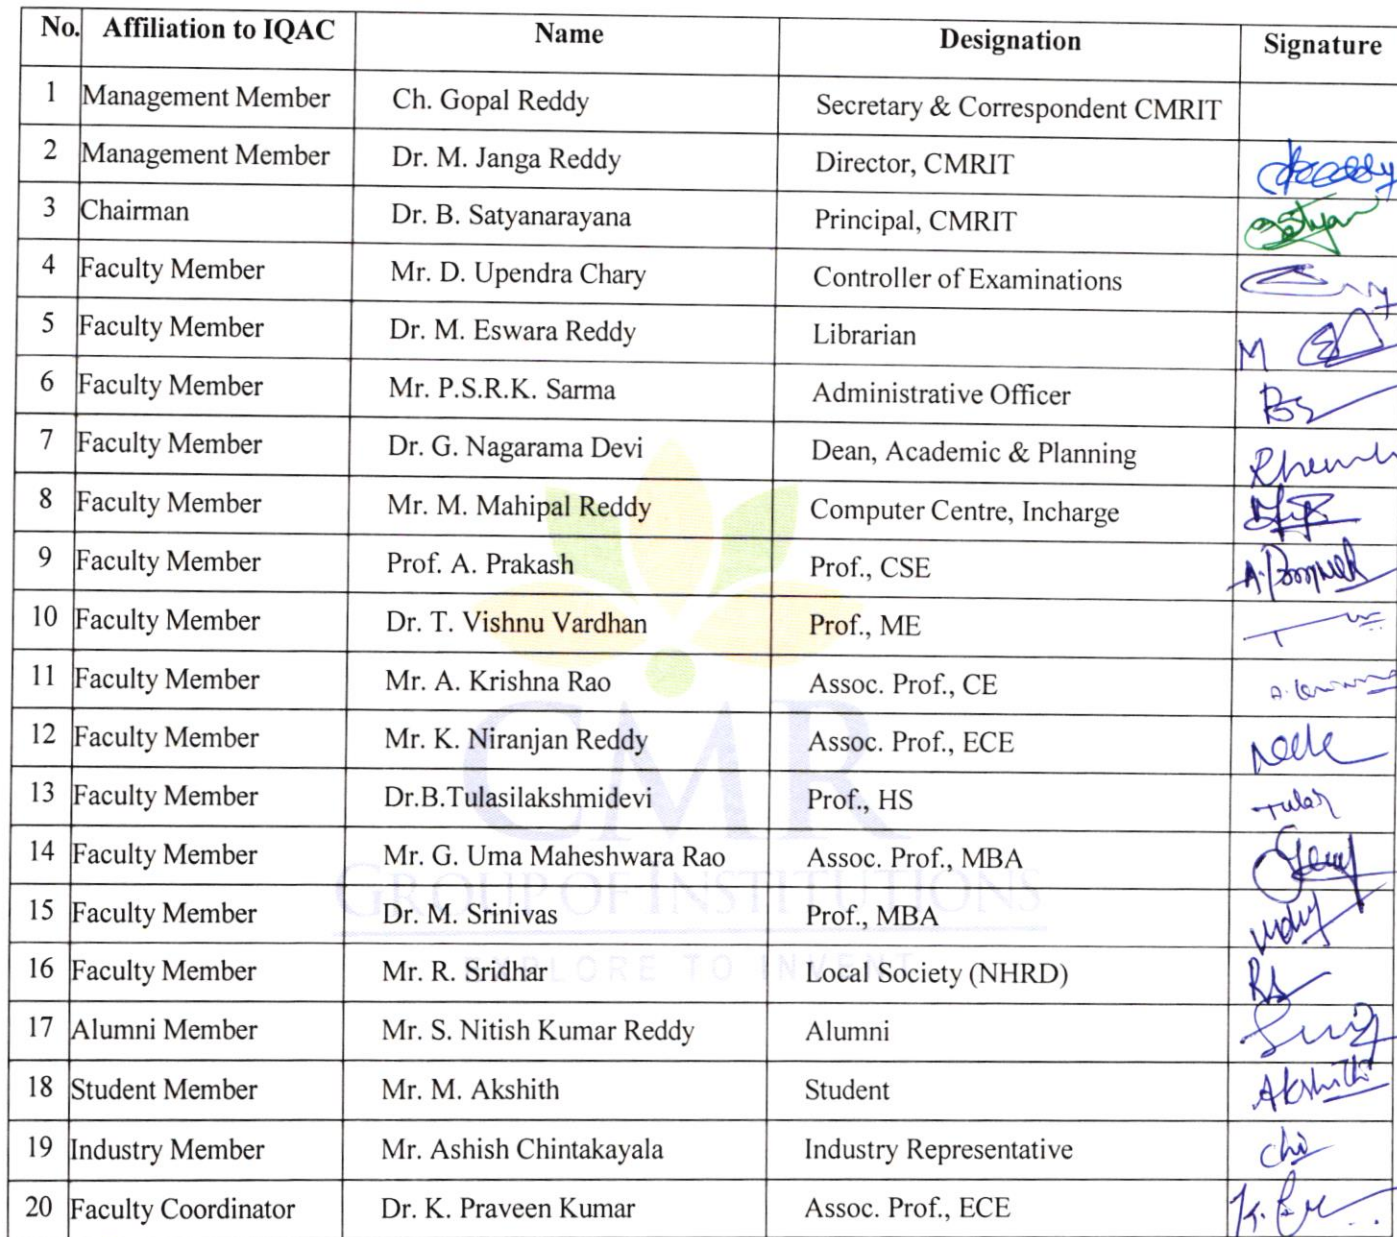 No. Affiliation to IQAC Name Designation Signature
1 Management Member Ch. Gopal Reddy Secretary & Correspondent CMRIT
2 Management Member Dr. M. Janga Reddy Director, CMRIT
3 Chairman Dr. B. Satyanarayana Principal, CMRIT
4 Faculty Member Mr. D. Upendra Chary Controller of Examinations
5 Faculty Member Dr. M. Eswara Reddy Librarian M
6 Faculty Member Mr. P.S.R.K. Sarma Administrative Officer
7 Faculty Member Dr. G. Nagarama Devi Dean, Academic & Planning
8 Faculty Member Mr. M. Mahipal Reddy Computer Centre, Incharge
9 Faculty Member Prof. A. Prakash Prof., CSE
10 Faculty Member Dr. T. Vishnu Vardhan Prof., ME
11 Faculty Member Mr. A. Krishna Rao Assoc. Prof., CE
12 Faculty Member Mr. K. Niranjan Reddy Assoc. Prof., ECE
13 Faculty Member Dr.B.Tulasilakshmidevi Prof., HS
14 Faculty Member Mr. G. Uma Maheshwara Rao Assoc. Prof., MBA
15 Faculty Member Dr. M. Srinivas Prof., MBA
16 Faculty Member Mr. R. Sridhar Local Society (NHRD)
17 Alumni Member Mr. S. Nitish Kumar Reddy Alumni
18 Student Member Mr. M. Akshith Student
19 Industry Member Mr. Ashish Chintakayala Industry Representative
20 Faculty Coordinator Dr. K. Praveen Kumar Assoc. Prof., ECE
CMR
GROUP OF INSTITUTIONS
EXPLORE TO INVENT